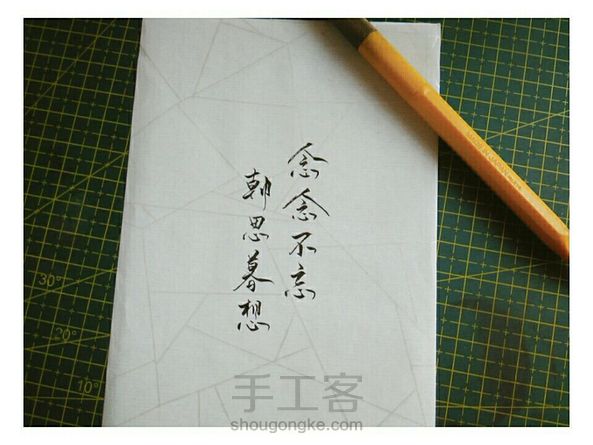 念念不忘
朝思暮想
30°
20°
10°
手工客
shougongke.com